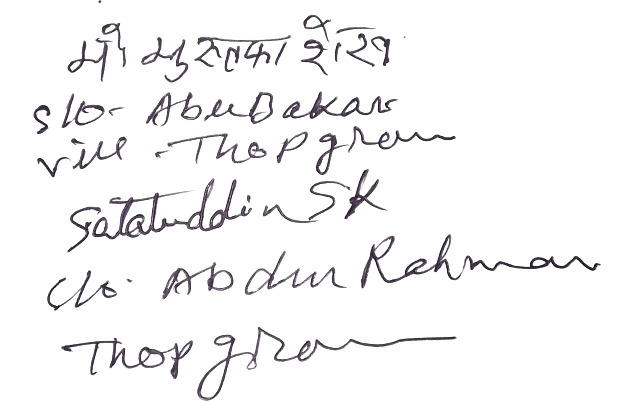 मो॰ मुस्तका शेख
S/O- AbuBakar
Vill - Thopgram
Satabuddin SK
C/o. Abdur Rahman
Thopgram